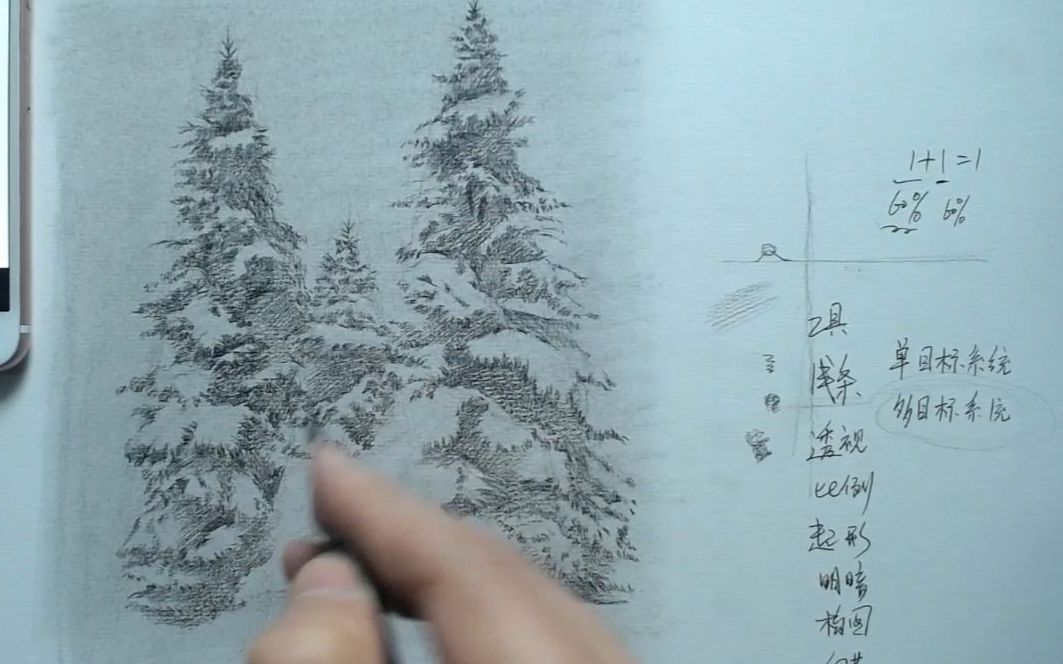 1+1=1
60% 6%
工具
线条
单目标系统
多目标系统
透视
比例
起形
明暗
构图